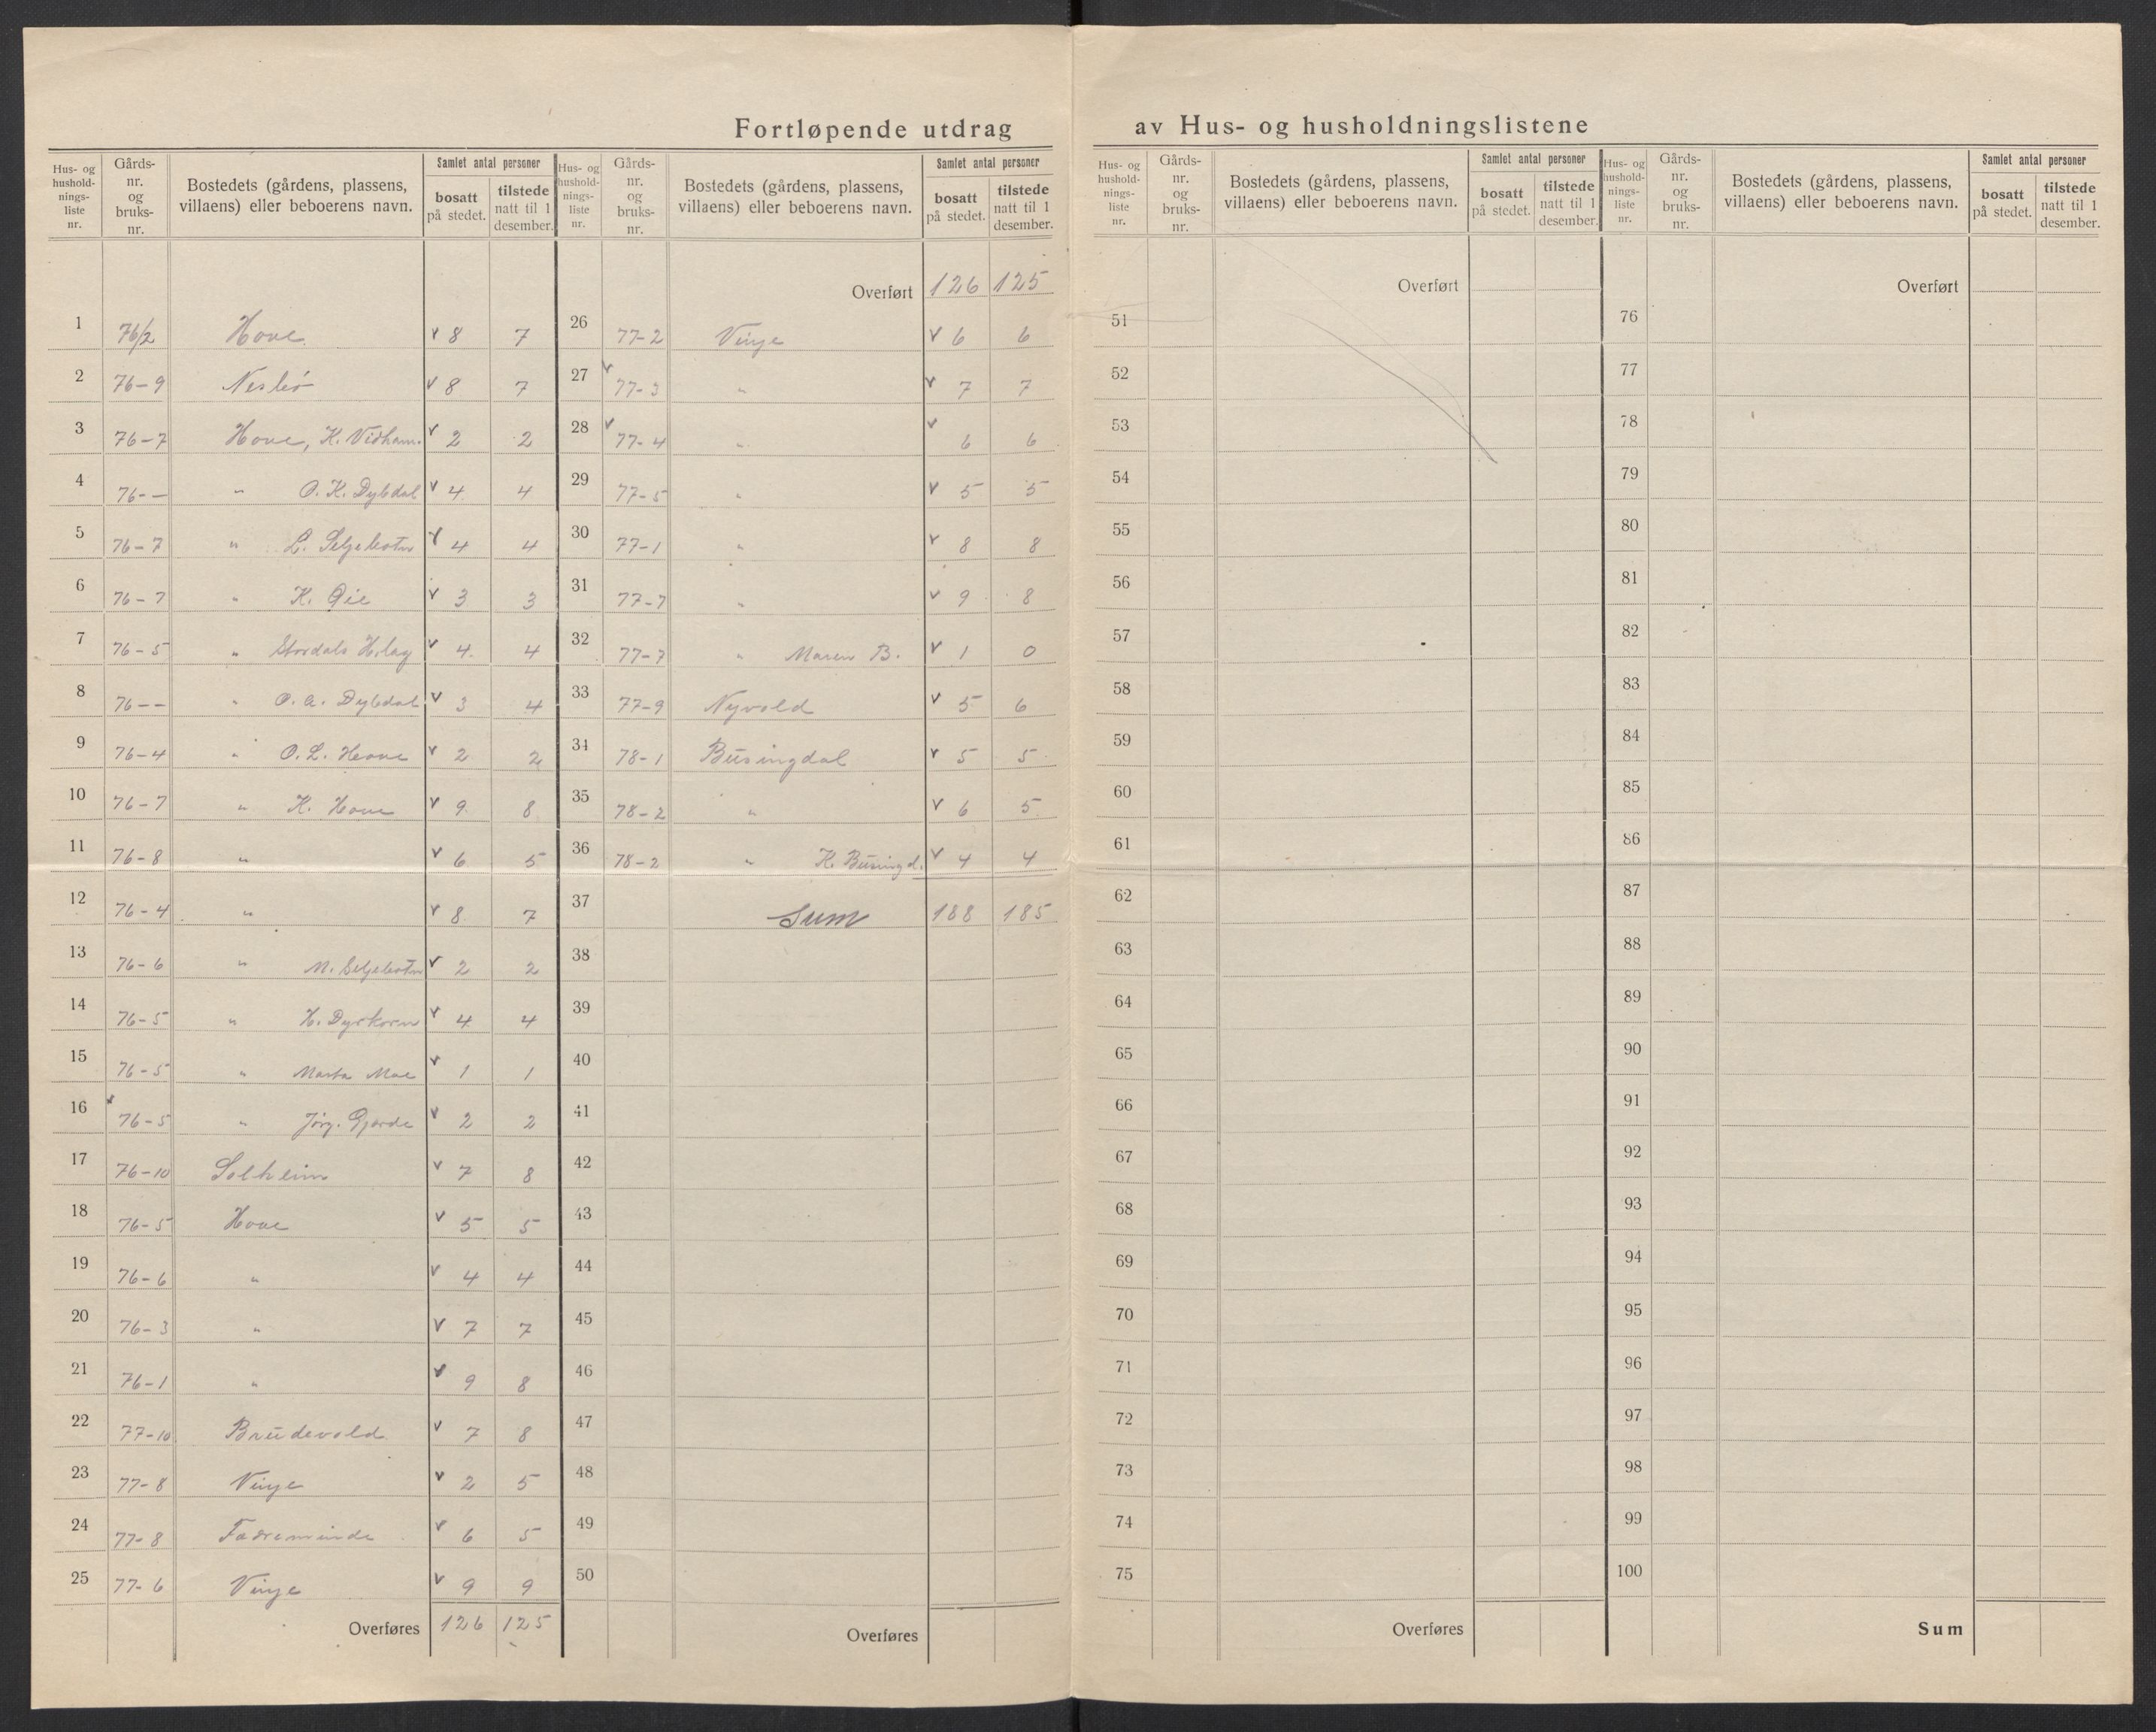 Fortløpende utdrag av Hus- og husholdningslistene
Hus- og hushold- nings- liste nr. | Gårds- nr. og bruks- nr. | Bostedets (gårdens, plassens, villaens) eller beboerens navn. | Samlet antal personer bosatt på stedet. | tilstede natt til 1 desember.
1 76/2 Hove v 8 7
2 76-9 Nesbö v 8 7
3 76-7 Hove, K. Vidham. v 2 2
4 76-- " O. K. Dybdal v 4 4
5 76-7 " L. Seljebotn v 4 4
6 76-7 " K. Øie v 3 3
7 76-5 " Stordals H.lag v 4 4
8 76-- " O. A. Dybdal v 3 4
9 76-4 " O. L. Hove v 2 2
10 76-7 " K. Hove v 9 8
11 76-8 " v 6 5
12 76-4 " v 8 7
13 76-6 " M. Seljebotn v 2 2
14 76-5 " H. Dyrkorn v 4 4
15 76-5 " Marta Moe v 1 1
16 76-5 " Jörg. Gjærde v 2 2
17 76-10 Solheim v 7 8
18 76-5 Hove v 5 5
19 76-6 " v 4 4
20 76-3 " v 7 7
21 76-1 " v 9 8
22 77-10 Brudevold v 7 8
23 77-8 Vinje v 2 5
24 77-8 Fædreminde v 6 5
25 77-6 Vinje v 9 9
Overføres 126 125
Hus- og hushold- nings- liste nr. | Gårds- nr. og bruks- nr. | Bostedets (gårdens, plassens, villaens) eller beboerens navn. | Samlet antal personer bosatt på stedet. | tilstede natt til 1 desember.
Overført 126 125
26 77-2 Vinje v 6 6
27 77-3 " v 7 7
28 77-4 " v 6 6
29 77-5 " v 5 5
30 77-1 " v 8 8
31 77-7 " v 9 8
32 77-7 " Maren B. v 1 0
33 77-9 Nyvold v 5 6
34 78-1 Busingdal v 5 5
35 78-2 " v 6 5
36 78-2 " K. Busingd. v 4 4
37 Sum 188 185
38
39
40
41
42
43
44
45
46
47
48
49
50
Overføres
Hus- og hushold- nings- liste nr. | Gårds- nr. og bruks- nr. | Bostedets (gårdens, plassens, villaens) eller beboerens navn. | Samlet antal personer bosatt på stedet. | tilstede natt til 1 desember.
Overført
51
52
53
54
55
56
57
58
59
60
61
62
63
64
65
66
67
68
69
70
71
72
73
74
75
Overføres
Hus- og hushold- nings- liste nr. | Gårds- nr. og bruks- nr. | Bostedets (gårdens, plassens, villaens) eller beboerens navn. | Samlet antal personer bosatt på stedet. | tilstede natt til 1 desember.
Overført
76
77
78
79
80
81
82
83
84
85
86
87
88
89
90
91
92
93
94
95
96
97
98
99
100
Sum